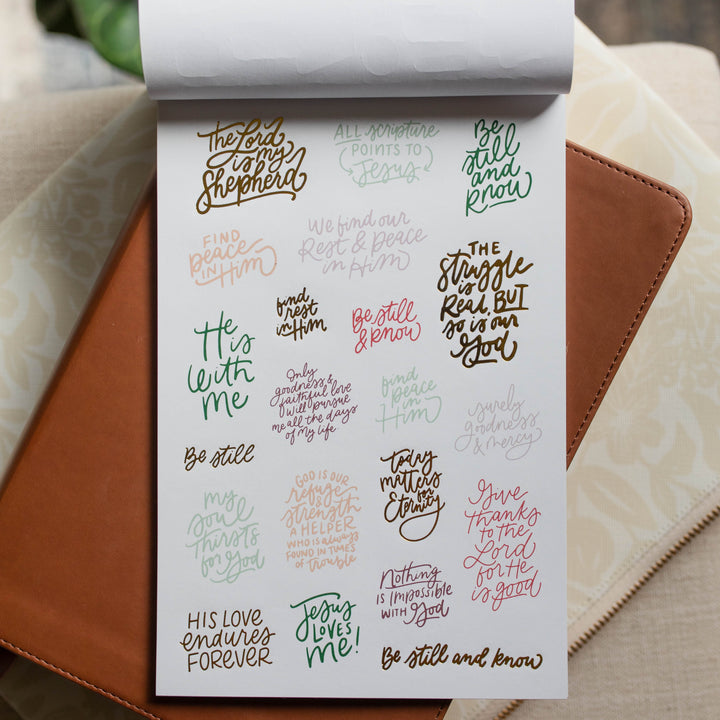 The Lord
is my
Shepherd
ALL scripture
POINTS TO
Jesus
Be
still
and
know
FIND
peace
IN Him
We find our
Rest & Peace
in Him
THE
Struggle
is
Real, BUT
so is our
God
find
rest
in Him
Be still
& know
He
is
with
me
Only
goodness &
faithful love
will pursue
me all the days
of my life
find
peace
in
Him
surely
goodness
& mercy
Be still
Today
matters
for
Eternity
my
soul
thirsts
for God
GOD IS OUR
refuge
&
strength
A HELPER
WHO IS always
FOUND IN TIMES
OF trouble
Give
thanks
to the
Lord
for He
is good
Nothing
IS Impossible
WITH God
HIS LOVE
endures
FOREVER
Jesus
LOVES
me!
Be still and know